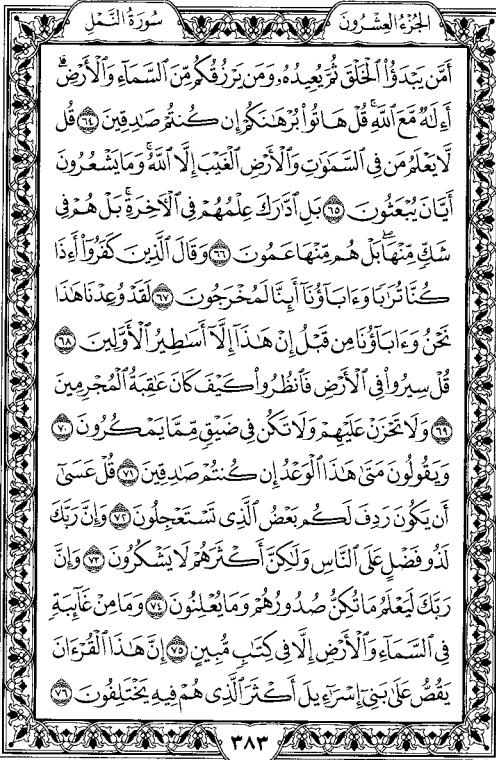 الجزء العشرون
سورة النمل
أَمَّن يَبْدَؤُا۟ ٱلْخَلْقَ ثُمَّ يُعِيدُهُۥ وَمَن يَرْزُقُكُم مِّنَ ٱلسَّمَآءِ وَٱلْأَرْضِ ۗ
أَءِلَـٰهٌ مَّعَ ٱللَّهِ ۚ قُلْ هَاتُوا۟ بُرْهَـٰنَكُمْ إِن كُنتُمْ صَـٰدِقِينَ ٦٤ قُل
لَّا يَعْلَمُ مَن فِى ٱلسَّمَـٰوَٰتِ وَٱلْأَرْضِ ٱلْغَيْبَ إِلَّا ٱللَّهُ ۚ وَمَا يَشْعُرُونَ
أَيَّانَ يُبْعَثُونَ ٦٥ بَلِ ٱدَّٰرَكَ عِلْمُهُمْ فِى ٱلْـَٔاخِرَةِ ۚ بَلْ هُمْ فِى
شَكٍّ مِّنْهَا ۖ بَلْ هُم مِّنْهَا عَمُونَ ٦٦ وَقَالَ ٱلَّذِينَ كَفَرُوٓا۟ أَءِذَا
كُنَّا تُرَٰبًا وَءَابَآؤُنَآ أَئِنَّا لَمُخْرَجُونَ ٦٧ لَقَدْ وُعِدْنَا هَـٰذَا
نَحْنُ وَءَابَآؤُنَا مِن قَبْلُ إِنْ هَـٰذَآ إِلَّآ أَسَـٰطِيرُ ٱلْأَوَّلِينَ ٦٨
قُلْ سِيرُوا۟ فِى ٱلْأَرْضِ فَٱنظُرُوا۟ كَيْفَ كَانَ عَـٰقِبَةُ ٱلْمُجْرِمِينَ
٦٩ وَلَا تَحْزَنْ عَلَيْهِمْ وَلَا تَكُن فِى ضَيْقٍ مِّمَّا يَمْكُرُونَ ٧٠
وَيَقُولُونَ مَتَىٰ هَـٰذَا ٱلْوَعْدُ إِن كُنتُمْ صَـٰدِقِينَ ٧١ قُلْ عَسَىٰٓ
أَن يَكُونَ رَدِفَ لَكُم بَعْضُ ٱلَّذِى تَسْتَعْجِلُونَ ٧٢ وَإِنَّ رَبَّكَ
لَذُو فَضْلٍ عَلَى ٱلنَّاسِ وَلَـٰكِنَّ أَكْثَرَهُمْ لَا يَشْكُرُونَ ٧٣ وَإِنَّ
رَبَّكَ لَيَعْلَمُ مَا تُكِنُّ صُدُورُهُمْ وَمَا يُعْلِنُونَ ٧٤ وَمَا مِنْ غَآئِبَةٍ
فِى ٱلسَّمَآءِ وَٱلْأَرْضِ إِلَّا فِى كِتَـٰبٍ مُّبِينٍ ٧٥ إِنَّ هَـٰذَا ٱلْقُرْءَانَ
يَقُصُّ عَلَىٰ بَنِىٓ إِسْرَٰٓءِيلَ أَكْثَرَ ٱلَّذِى هُمْ فِيهِ يَخْتَلِفُونَ ٧٦
٣٨٣